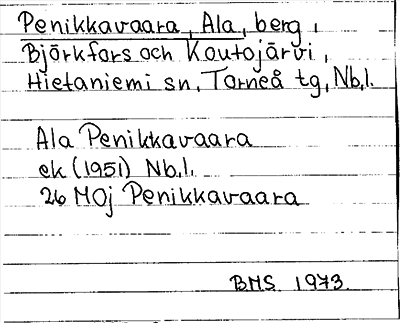 Penikkavaara, Ala, berg,
Björkfors och Koutojärvi,
Hietaniemi sn, Torneå tg, Nb.l.
Ala Penikkavaara
ek (1951) Nb.l.
26 MOj Penikkavaara
BMS 1973